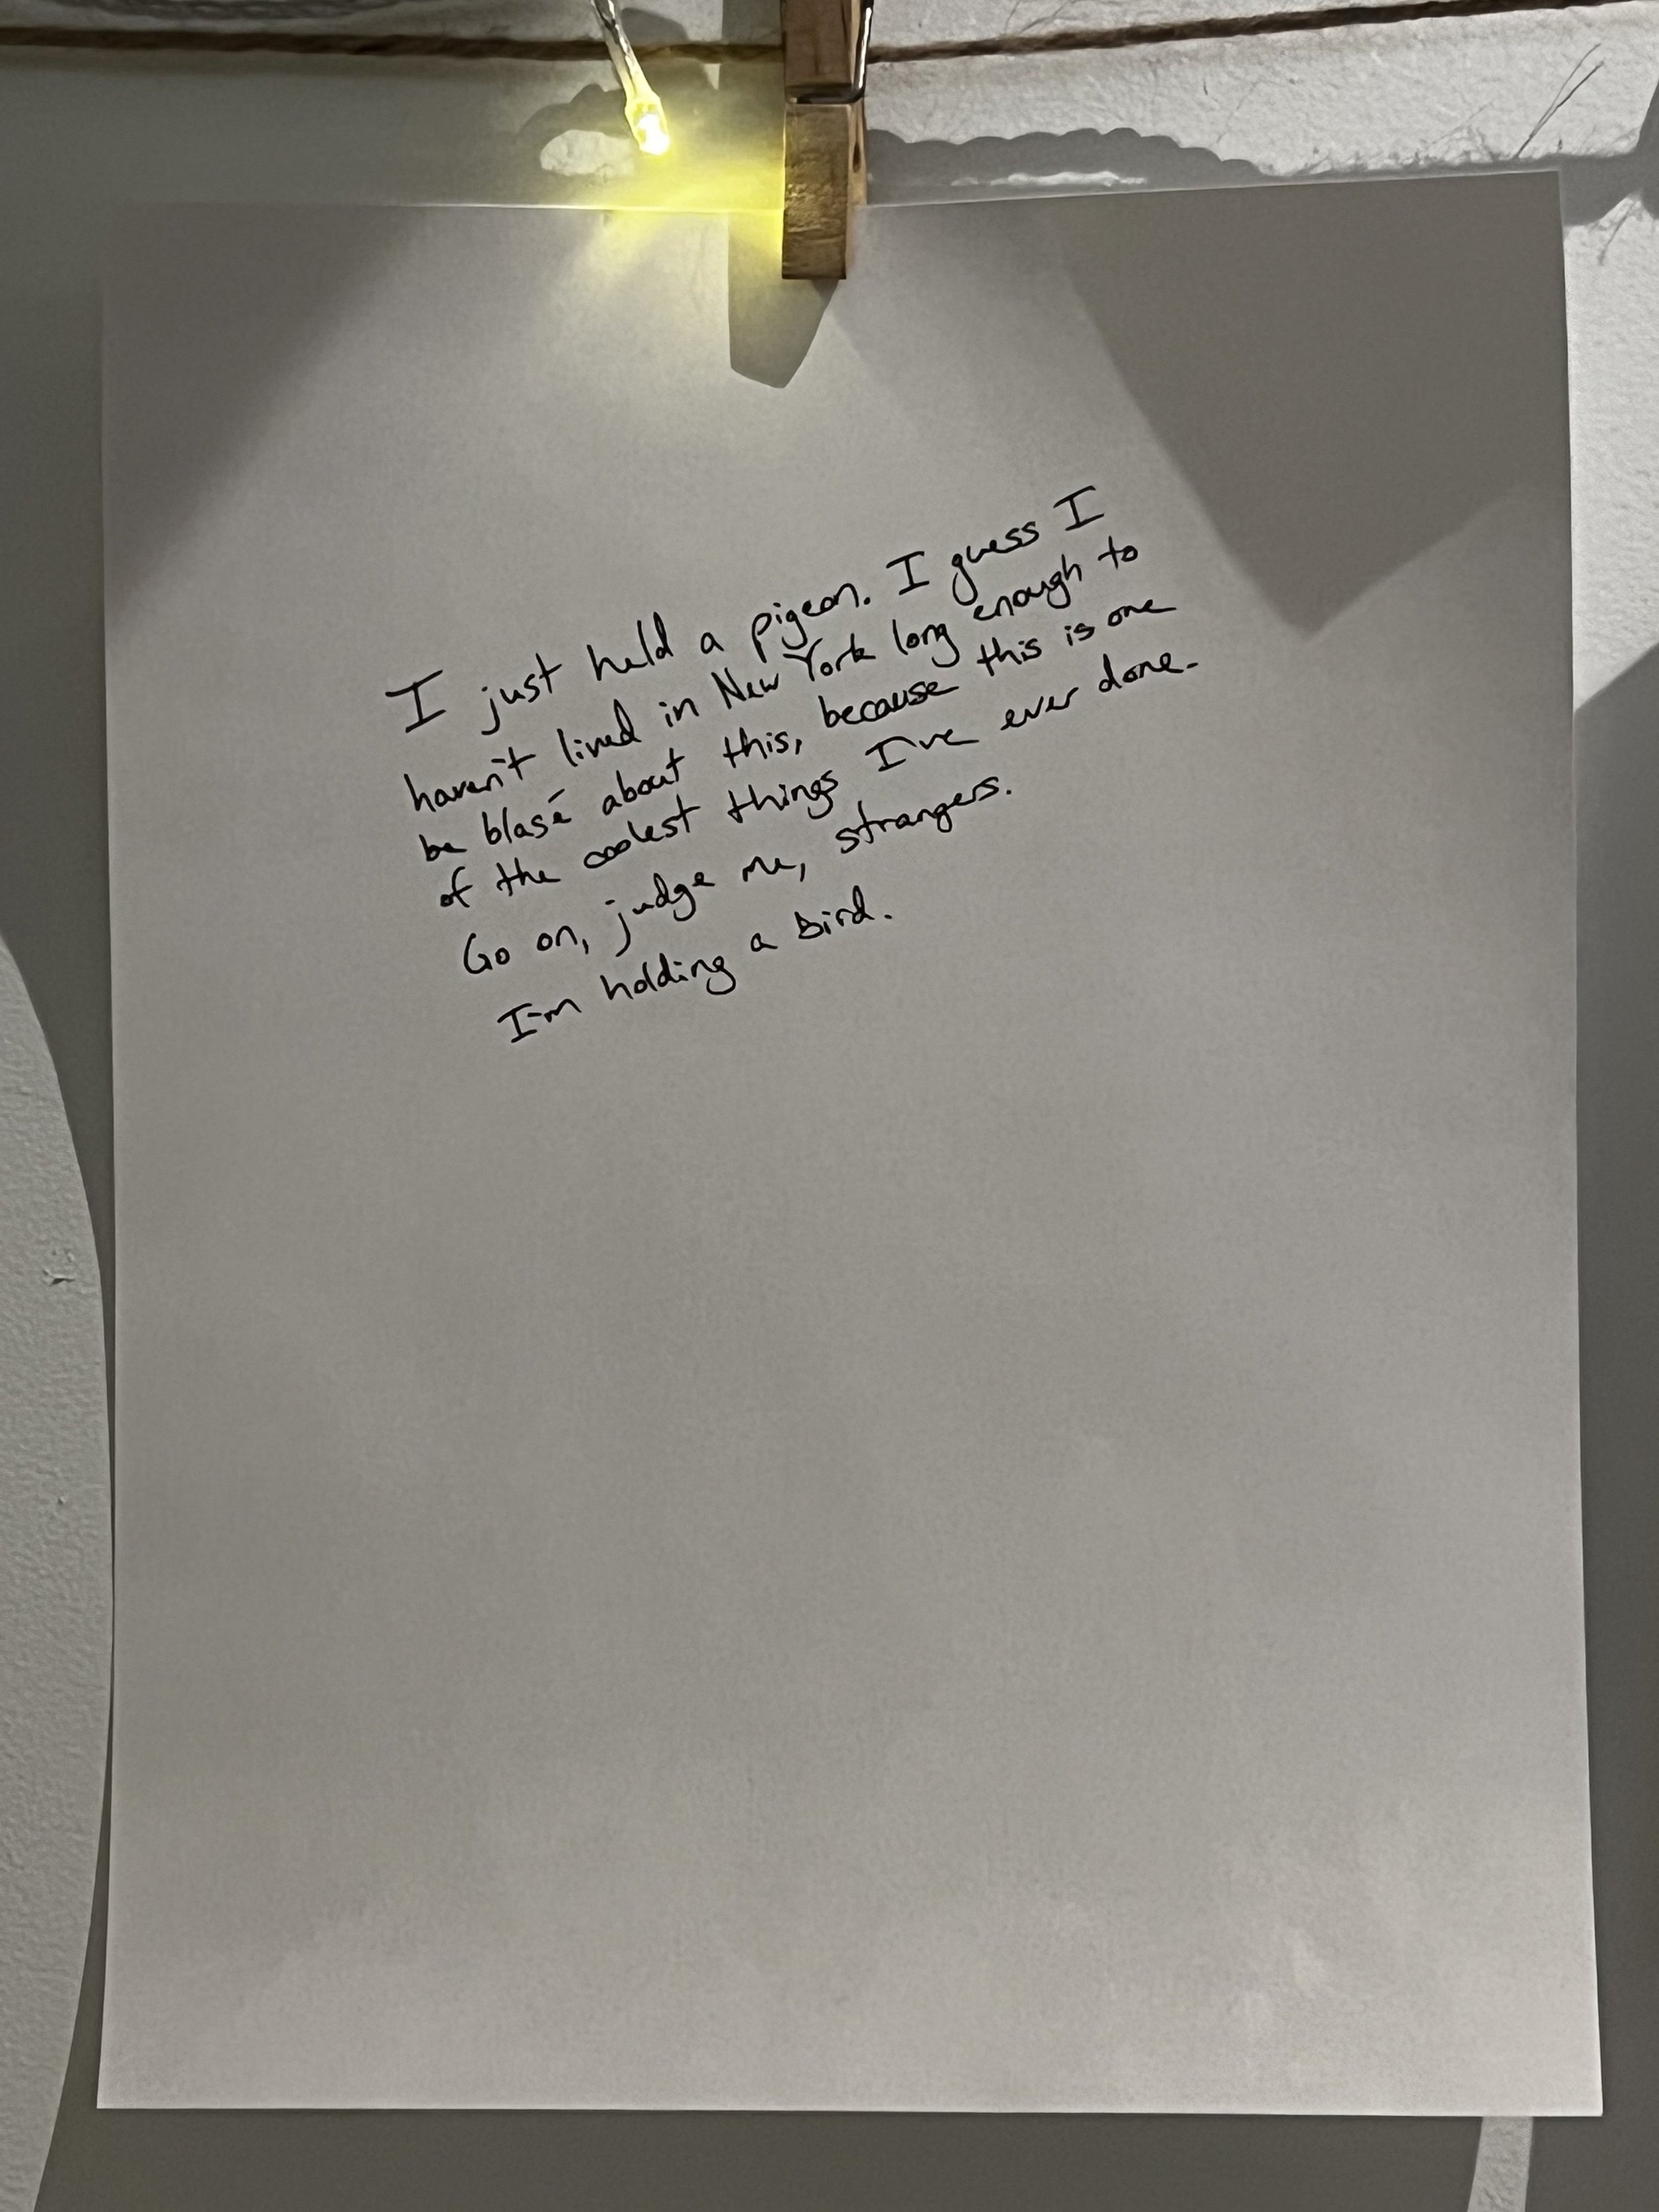 I just held a pigeon. I guess I
haven't lived in New York long enough to
be blasé about this, because this is one
of the coolest things I've ever done.
Go on, judge me, strangers.
I'm holding a bird.